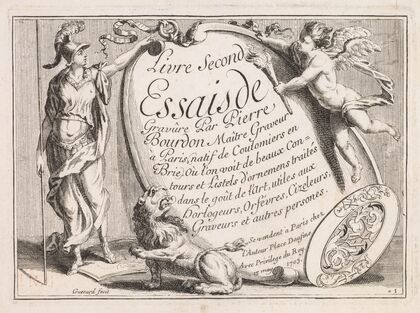 Livre Second
Essais de
Gravure Par Pierre
Bourdon Maitre Graveur
à Paris, natif de Coulomiers en
Brie, Ou l'on voit de beaux Con-
tours et Listels d'ornemens traités
dans le goût de l'art, utiles aux
Horlogeurs, Orfévres, Cizeleurs,
Graveurs et autres persones.
Se vendent a Paris chez
L'Auteur Place Daufine
Avec Privilege du Roy
1703.
Guerard fecit
1